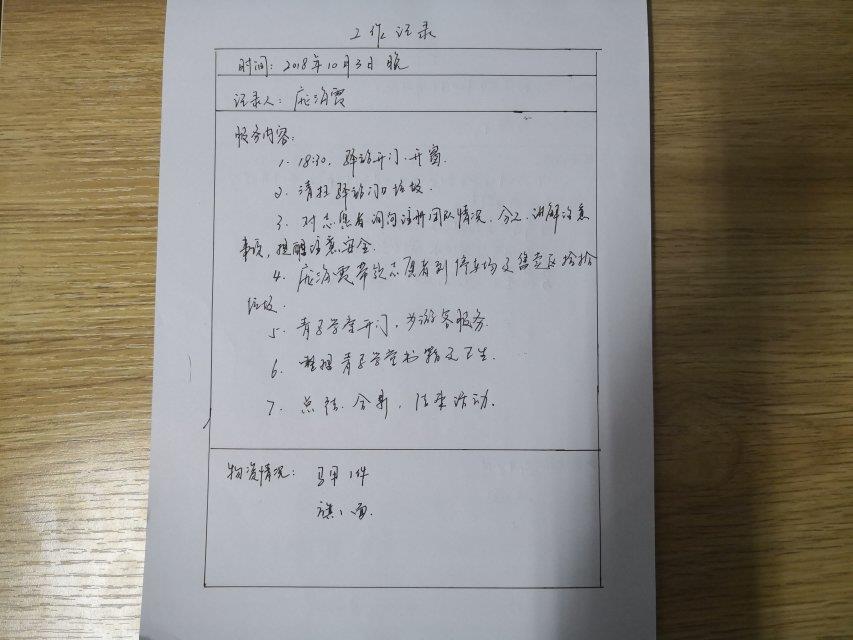 工作记录
时间：2018年10月3日 晚
记录人：庞海霞
服务内容：
1. 18:30，驿站开门、开窗.
2. 清扫驿站门口垃圾.
3. 对志愿者询问注册团队情况，分工，讲解注意
事项，提醒注意安全.
4. 庞海霞带领志愿者到停车场及售卖区捡拾
垃圾.
5. 青子学堂开门，为游客服务.
6. 整理青子学堂书籍及卫生.
7. 总结、合影，结束活动.
物资情况： 马甲1件
旗1面.